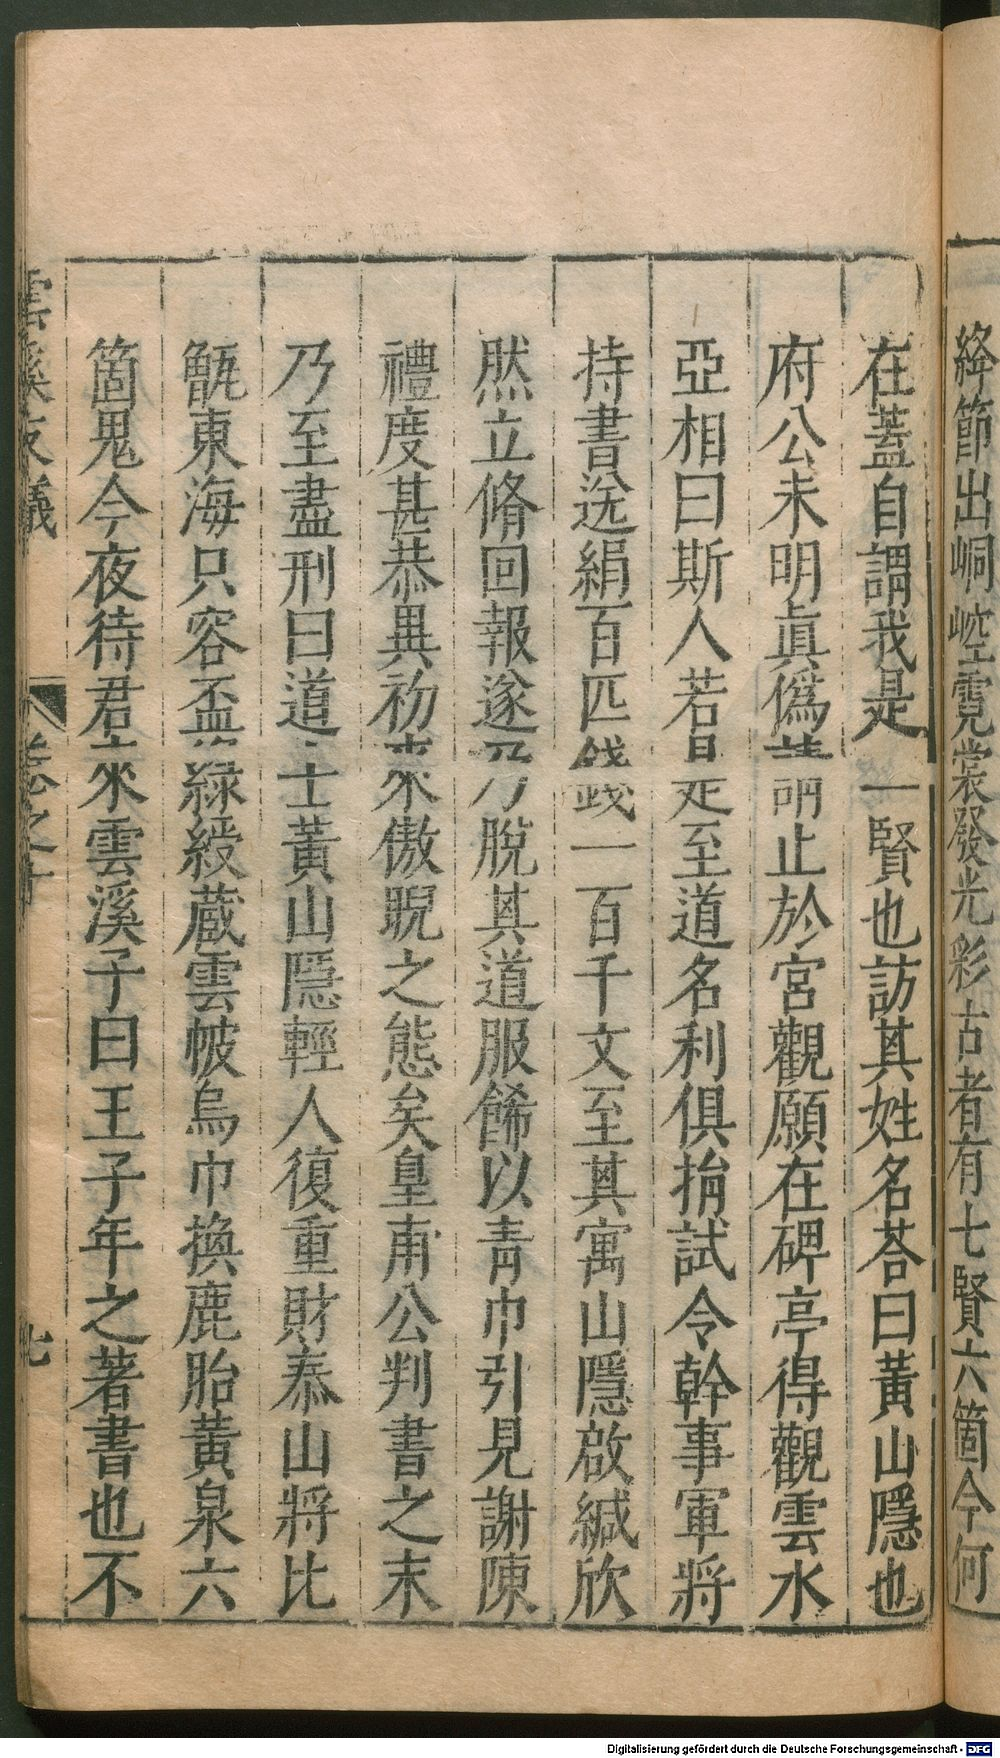 絳節出峒崆霓裳發光彩古者有七賢六箇今何
在蓋自謂我是一賢也訪其姓名荅曰黃山隱也
府公未明眞僞請止於宮觀願在碑亭得觀雲水
亞相曰斯人若是至道名利俱捐試令幹事軍將
持書送絹百匹錢一百千文至其寓山隱啟緘欣
然立脩回報遂乃脫其道服餙以靑巾引見謝陳
禮度甚恭異初來傲睨之態矣皇甫公判書之末
乃至盡刑曰道士黃山隱輕人復重財泰山將比
甑東海只容盃綠綬藏雲帔烏巾換鹿胎黃泉六
箇鬼今夜待君來雲溪子曰王子年之著書也不
雲溪友議
卷之十
七
Digitalisierung gefördert durch die Deutsche Forschungsgemeinschaft - DFG